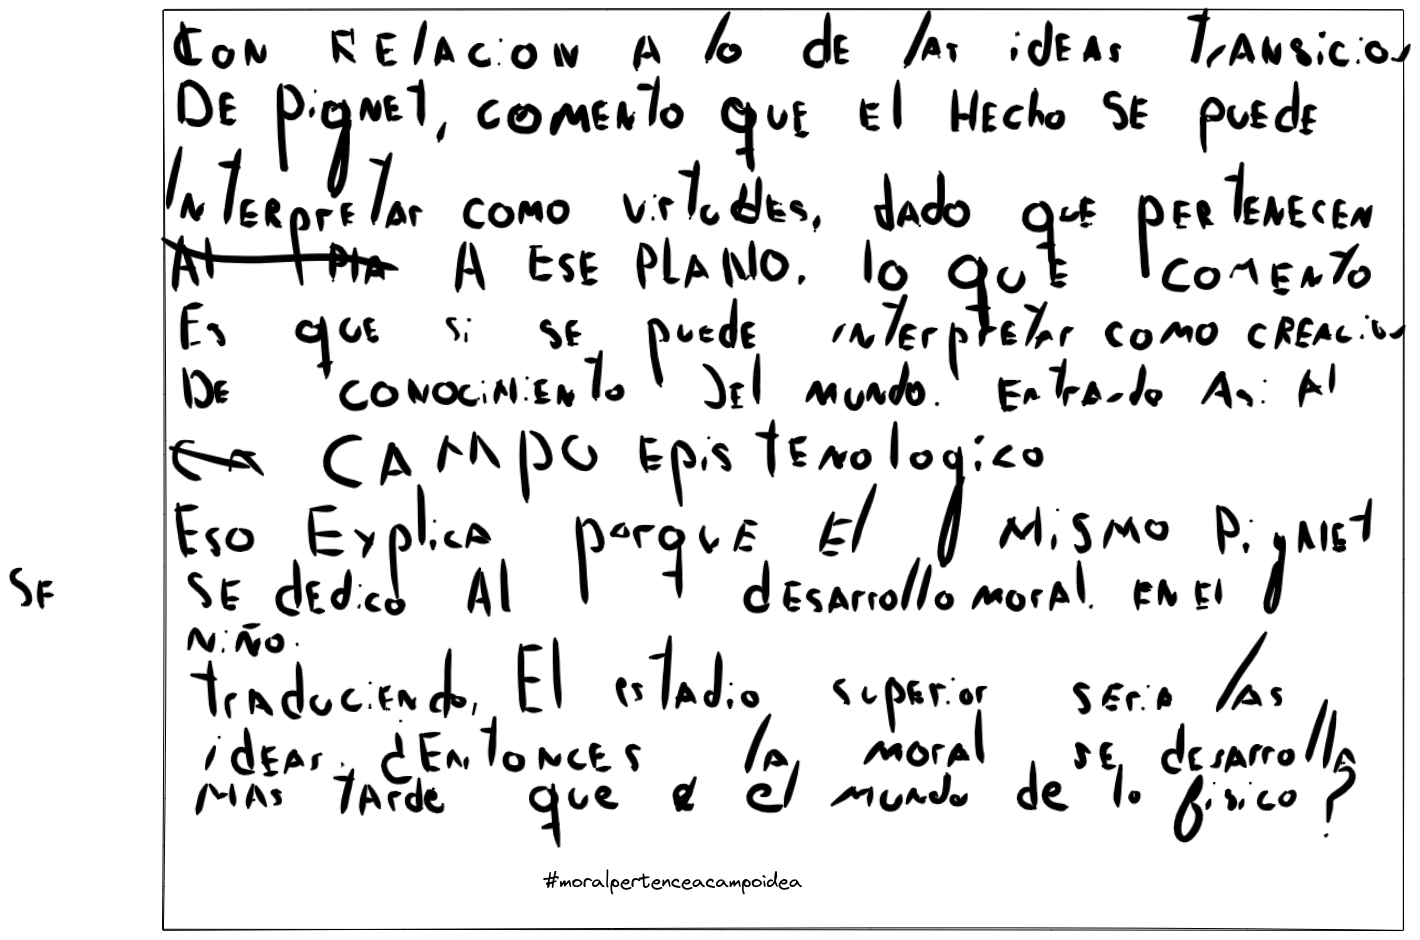 CON RElACION A lo dE lAs idEAs tRANSiCio
DE PigNEt, COMENto quE El HECho SE puEdE
INtERprEtAr COMO VirtudEs, dAdo quE pERtENECEN
Al PlA A ESE PLANO. lo quE COMENto
Es quE si sE puEdE iNtErprEtAr COMO CREACio
DE CONOCiMiENto DEl MUNdo. ENtrAndo Asi Al
CA CAMPO EpistENologico
Eso Explica porquE El MiSMO PigNEt
SE SE dEdico Al dESArrollo MorAl. EN El
Niño.
trAduciENdo, El EstAdio supErior sEriA lAs
idEAs. ¿ENtoNCES lA MorAl sE dEsArrollA
MAs tArdE quE e el MUNdo de lo fisico?
#moralpertenceacampoidea